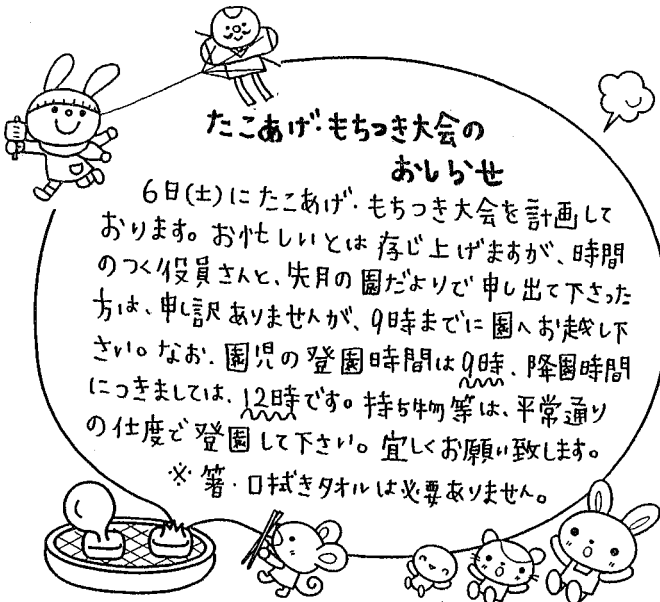 たこあげ・もちつき大会の
おしらせ
6日(土)にたこあげ・もちつき大会を計画して
おります。お忙しいとは存じ上げますが、時間
のつく役員さんと、先月の園だよりで申し出て下さった
方は、申し訳ありませんが、9時までに園へお越し下
さい。なお、園児の登園時間は9時、降園時間
につきましては、12時です。持ち物等は、平常通り
の仕度で登園して下さい。宜しくお願い致します。
※箸・口拭きタオルは必要ありません。